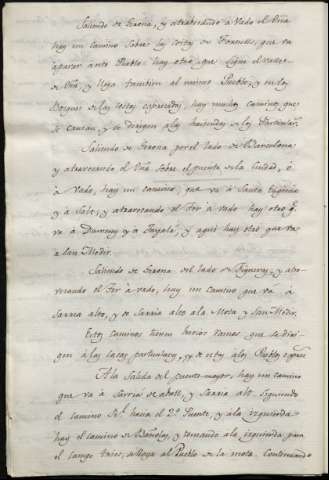 Saliendo de Gerona, y atravesando à vado el Oña
hay un camino sobre las costas de Fornells, que va
à parar ante Pueblo: hay otro que sigue el valle
de Oña, y llega tambien al mismo Pueblo, y en los
Bosques de las costas espresadas, hay muchos caminos que
se cruzan, y se dirigen à las haciendas de los Particulares.
Saliendo de Gerona por el lado de Barcelona
y atravesando el Oña sobre el puente de la Ciudad, ó
à vado, hay un camino, que va à Santa Eugenia
y à Salt, y atravesando el Ter à vado hay otro q.
va à Domeny y à Tayalá, y aqui hay otro que va
à San Medir.
Saliendo de Gerona del lado de Figueras, y atra-
vesando el Ter à vado, hay un camino que va à
Sarria alto, y de Sarria alto à la Mota y San Medir.
Estos caminos tienen barios ramos que se diri-
gen à las casas particulares, y de estas à los Pueblos
A la Salida del puente mayor, hay un camino
que va à Sarriá de aball, y Sarria alt. Siguiendo
el camino Rl. hacia el 2º Puente, y à la izquierda
hay el camino de Bañolas, y tomando à la izquierda para
el campo se llega al Pueblo de la mota. Continuando